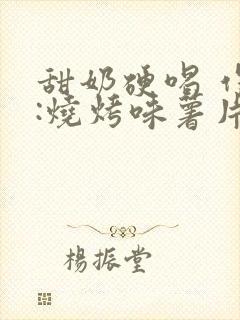 甜奶硬唱
:燒烤味薯片
楊振堂